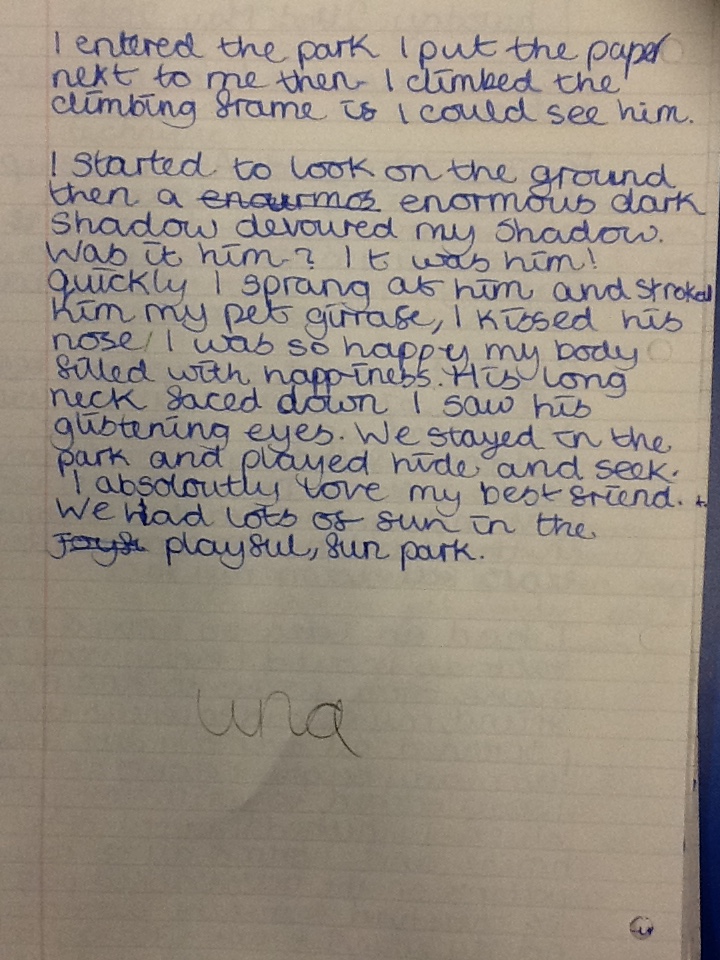 I entered the park I put the paper
next to me then I climbed the
climbing frame if I could see him.
I started to look on the ground
then a enourmos enormous dark
shadow devoured my shadow.
Was it him? It was him!
quickly I sprang at him and stroked
him my pet girrafe, I kissed his
nose, I was so happy my body
filled with happiness. His long
neck faced down I saw his
glistening eyes. We stayed in the
park and played hide and seek.
I absoloutly love my best friend.
We had lots of fun in the
playful, fun park.
una